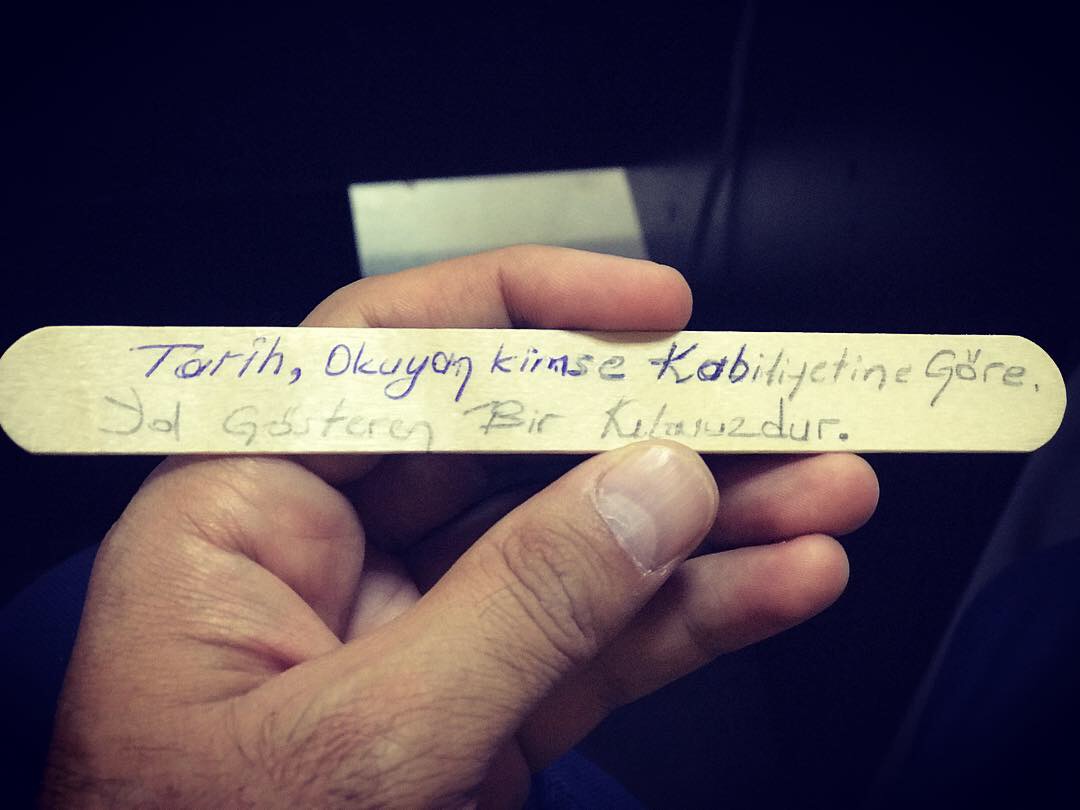 Tarih, Okuyan kimse Kabiliyetine Göre.
Yol Gösteren Bir Kılavuzdur.